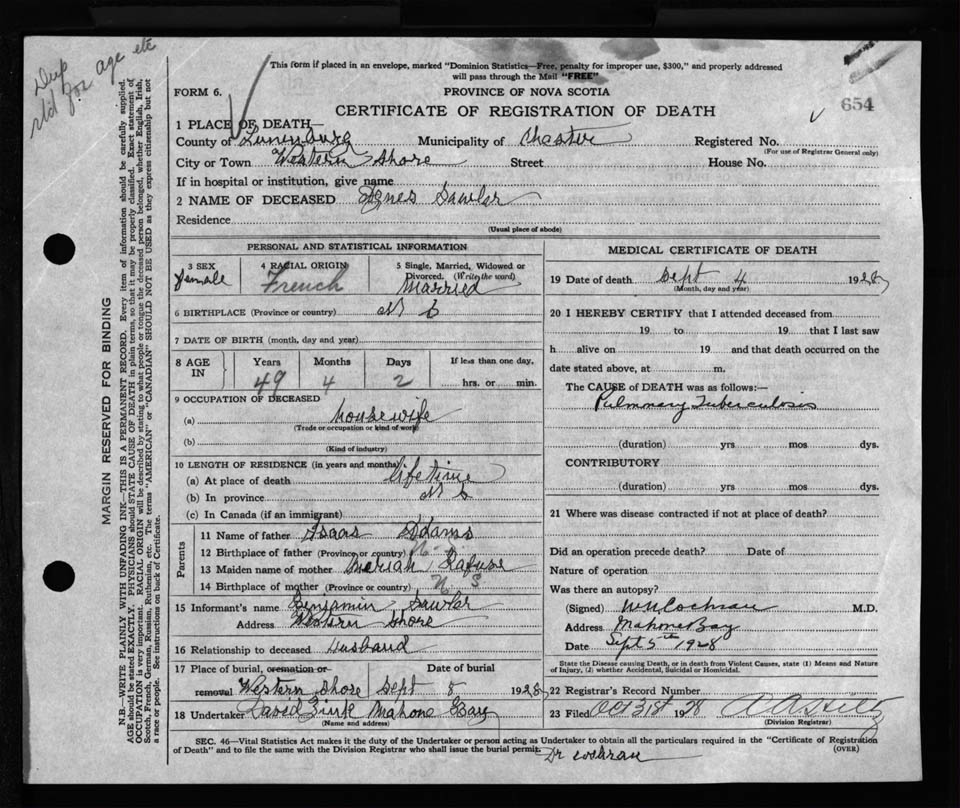 age etc
Dup
slid for
This form if placed in an envelope, marked "Dominion Statistics—Free, penalty for improper use, $300," and properly addressed
will pass through the Mail "FREE"
FORM 6.
PROVINCE OF NOVA SCOTIA
CERTIFICATE OF REGISTRATION OF DEATH
654
1 PLACE OF DEATH—
County of Lunenburg Municipality of Chester Registered No.
(For use of Registrar General only)
City or Town Western Shore Street House No.
If in hospital or institution, give name
2 NAME OF DECEASED Agnes Sawler
Residence
(Usual place of abode)
PERSONAL AND STATISTICAL INFORMATION
3 SEX 4 RACIAL ORIGIN 5 Single, Married, Widowed or
Divorced. (Write the word)
female French Married
6 BIRTHPLACE (Province or country) N S
7 DATE OF BIRTH (month, day and year)
8 AGE IN Years Months Days If less than one day,
49 4 2 hrs. or min.
9 OCCUPATION OF DECEASED
(a) housewife
(Trade or occupation or kind of work)
(b)
(Kind of industry)
10 LENGTH OF RESIDENCE (in years and months)
(a) At place of death life time
(b) In province N S
(c) In Canada (if an immigrant)
Parents
11 Name of father Isaac Adams
12 Birthplace of father (Province or country)
13 Maiden name of mother Meriah Rafuse
14 Birthplace of mother (Province or country) N S
15 Informant's name Benjamin Sawler
Address Western Shore
16 Relationship to deceased Husband
17 Place of burial, cremation or Date of burial
removal Western Shore Sept 5 1928
18 Undertaker David Zink Mahone Bay
(Name and address)
MEDICAL CERTIFICATE OF DEATH
19 Date of death Sept 4 1928
(Month, day and year)
20 I HEREBY CERTIFY that I attended deceased from
19 to 19 that I last saw
h alive on 19 and that death occurred on the
date stated above, at m.
The CAUSE of DEATH was as follows:—
Pulmonary Tuberculosis
(duration) yrs mos dys.
CONTRIBUTORY
(duration) yrs mos dys.
21 Where was disease contracted if not at place of death?
Did an operation precede death? Date of
Nature of operation
Was there an autopsy?
(Signed) W N Cochran M.D.
Address Mahone Bay
Date Sept 5th 1928
State the Disease causing Death, or in death from Violent Causes, state (1) Means and Nature
of Injury, (2) whether Accidental, Suicidal or Homicidal.
22 Registrar's Record Number
23 Filed Oct 31st 1928
(Division Registrar)
SEC. 46—Vital Statistics Act makes it the duty of the Undertaker or person acting as Undertaker to obtain all the particulars required in the "Certificate of Registration
of Death" and to file the same with the Division Registrar who shall issue the burial permit. (OVER)
Dr Cochran
MARGIN RESERVED FOR BINDING
N.B.—WRITE PLAINLY WITH UNFADING INK—THIS IS A PERMANENT RECORD. Every item of information should be carefully supplied.
AGE should be stated EXACTLY. PHYSICIANS should STATE CAUSE OF DEATH in plain terms, so that it may be properly classified. Exact statement of
OCCUPATION is very important. RACIAL ORIGIN will be described by stating to what people or tongue the deceased person belonged, whether English, Irish,
Scotch, French, German, Russian, Ruthenian, etc. The terms "AMERICAN" or "CANADIAN" SHOULD NOT BE USED as they express citizenship but not
a race or people. See instructions on back of Certificate.